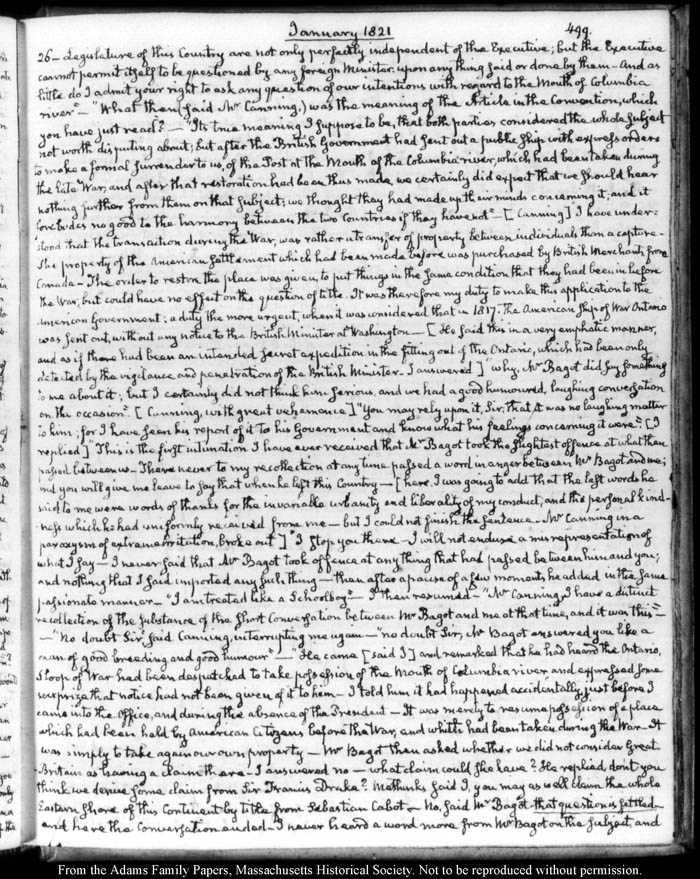 January 1821
499.
26 – Legislature of this Country are not only perfectly independent of the Executive; but the Executive
cannot permit itself to be questioned by any foreign Minister, upon any thing said or done by them – And as
little do I admit your right to ask any question of our intentions with regard to the Mouth of Columbia
river" – "What then (said Mr Canning,) was the meaning of the Article in the Convention, which
you have just read?" – "Its true meaning I suppose to be, that both parties considered the whole subject
not worth disputing about; but after the British Government had sent out a public ship with express orders
to make a formal surrender to us, of the Post at the Mouth of the Columbia river, which had been taken during
the late War, and after that restoration had been thus made, we certainly did expect that we should hear
nothing further from them on that subject; we thought they had made up their minds concerning it; and it
forebodes no good to the harmony between the two Countries if they have not" – [Canning] I have under-
stood that the transaction during the War, was rather a transfer of property between individuals than a capture –
The property of the American settlement which had been made before was purchased by British Merchants from
Canada – The order to restore the place was given, to put things in the same condition that they had been in before
the War, but could have no effect on the question of title. It was therefore my duty to make this application to the
American Government: a duty the more urgent, when it was considered that in 1817. the American Ship of War Ontario
was sent out, without any notice to the British Minister at Washington – [He said this in a very emphatic manner,
and as if there had been an intended secret expedition in the fitting out of the Ontario, which had been only
detected by the vigilance and penetration of the British Minister – I answered] "why, Mr Bagot did say something
to me about it; but I certainly did not think him serious, and we had a good humoured, laughing conversation
on the occasion". [Canning, with great vehemence] "You may rely upon it, Sir, that it was no laughing matter
to him; for I have seen his report of it to his Government and know what his feelings concerning it were". [I
replied] "This is the first intimation I have ever received that Mr Bagot took the slightest offence at what then
passed between us – There never to my recollection at any time passed a word in anger between Mr Bagot and me;
and you will give me leave to say that when he left this Country – [here I was going to add that the last words he
said to me were words of thanks for the invariable urbanity and liberality of my conduct, and the personal kind-
ness which he had uniformly received from me – but I could not finish the sentence – Mr Canning in a
paroxysm of extreme irritation, broke out] "I stop you there – I will not endure a misrepresentation of
what I say – I never said that Mr Bagot took offence at any thing that had passed between him and you;
and nothing that I said imported any such thing – then after a pause of a few moments, he added in the same
passionate manner – "I am treated like a Schoolboy" – I then resumed – "Mr Canning, I have a distinct
recollection of the substance of the short Conversation between Mr Bagot and me at that time, and it was this" –
– "No doubt Sir, said Canning, interrupting me again – "no doubt Sir, Mr Bagot answered you like a
man of good breeding and good humour" – "He came [said I] and remarked that he had heard the Ontario,
Sloop of War had been despatched to take possession of the Mouth of Columbia river and expressed some
surprize that notice had not been given of it to him – I told him it had happened accidentally, just before I
came into the Office, and during the absence of the President – It was merely to resume possession of a place
which had been held by American Citizens before the War, and which had been taken during the War – It
was simply to take again our own property – Mr Bagot then asked whether we did not consider Great-
Britain as having a claim there – I answered no – what claim could she have? He replied, don't you
think we derive some claim from Sir Francis Drake? Methinks said I, you may as well claim the whole
Eastern Shore of this Continent by title from Sebastian Cabot – No, said Mr Bagot that question is settled –
and here the Conversation ended – I never heard a word more from Mr Bagot on the subject, and
From the Adams Family Papers, Massachusetts Historical Society. Not to be reproduced without permission.